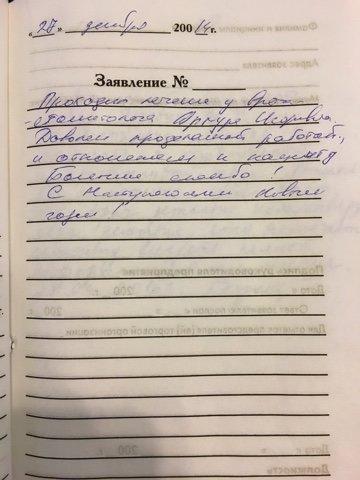 "27" декабря 200 14 г.
Заявление № ______
Проходил лечение у врача-
стоматолога Артура Игоревича.
Доволен проделанной работой,
и отношением к пациенту
Большое спасибо!
С Наступающим Новым
годом!